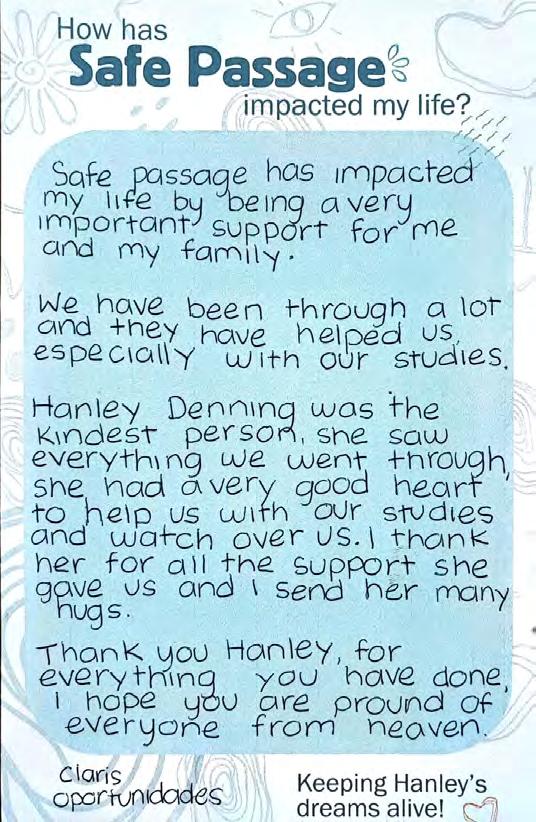 How has
Safe Passage
impacted my life?
Safe passage has impacted
my life by being a very
important support for me
and my family.
We have been through a lot
and they have helped us,
especially with our studies.
Hanley Denning was the
kindest person, she saw
everything we went through,
she had a very good heart
to help us with our studies
and watch over us. I thank
her for all the support she
gave us and I send her many
hugs.
Thank you Hanley, for
everything you have done,
I hope you are pround of
everyone from heaven.
Claris
oportunidades
Keeping Hanley's
dreams alive!